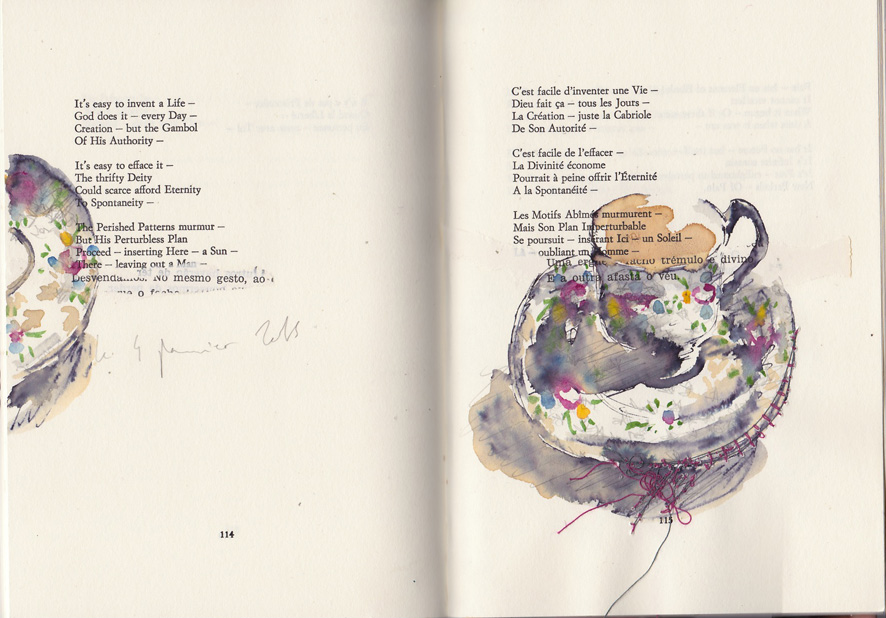 It's easy to invent a Life –
God does it – every Day –
Creation – but the Gambol
Of His Authority –
It's easy to efface it –
The thrifty Deity
Could scarce afford Eternity
To Spontaneity –
The Perished Patterns murmur –
But His Perturbless Plan
Proceed – inserting Here – a Sun –
There – leaving out a Man –
Desvendamos. No mesmo gesto, ao
4
114
C'est facile d'inventer une Vie –
Dieu fait ça – tous les Jours –
La Création – juste la Cabriole
De Son Autorité –
C'est facile de l'effacer –
La Divinité économe
Pourrait à peine offrir l'Éternité
A la Spontanéité –
Les Motifs Abîmés murmurent –
Mais Son Plan Imperturbable
Se poursuit – insérant Ici – un Soleil –
oubliant un Homme –
Uma trémulo e divino
E a outra afasta o véu.
115